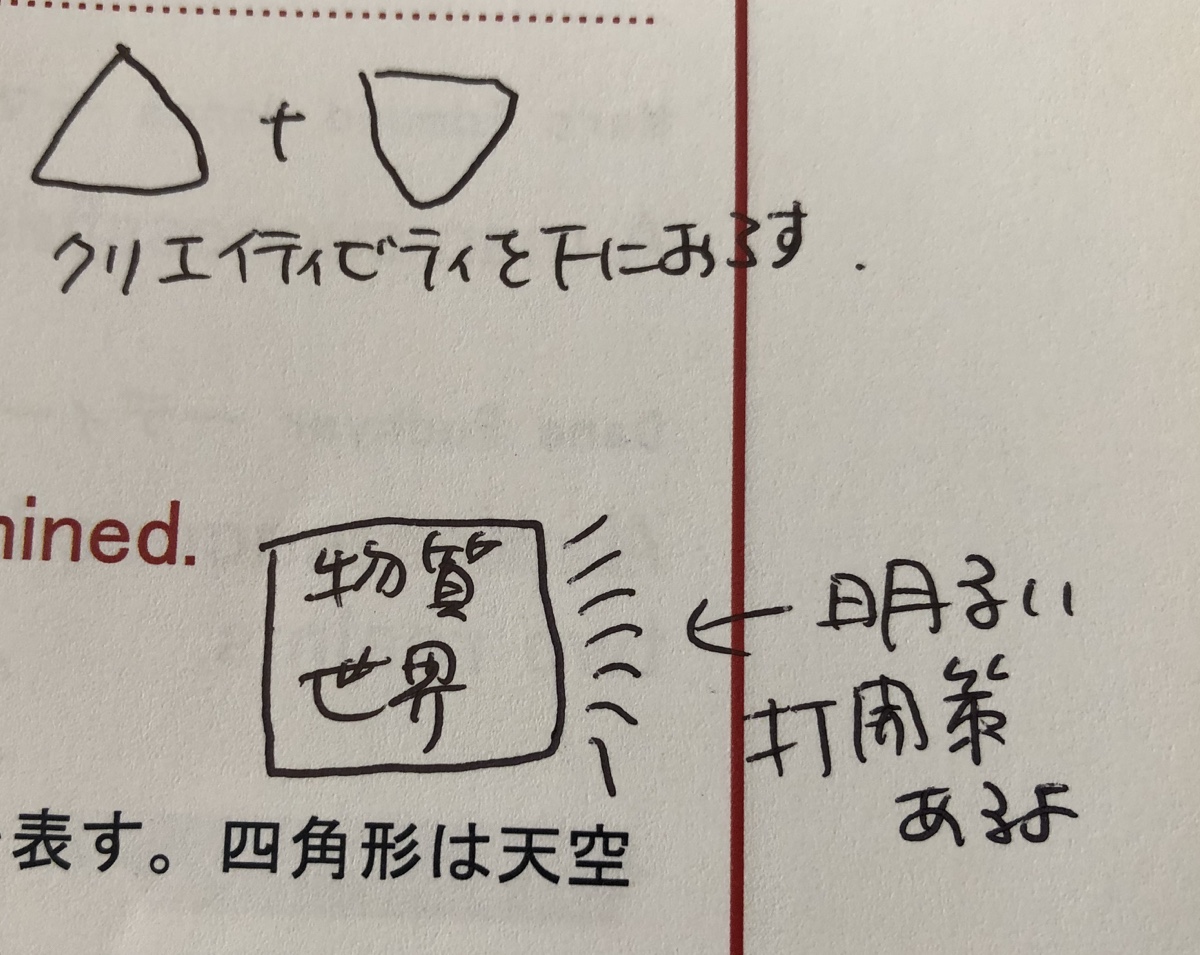 +
クリエイティビティを下におろす.
mined.
物質
世界
← 明るい
打開策
あるよ
表す。四角形は天空